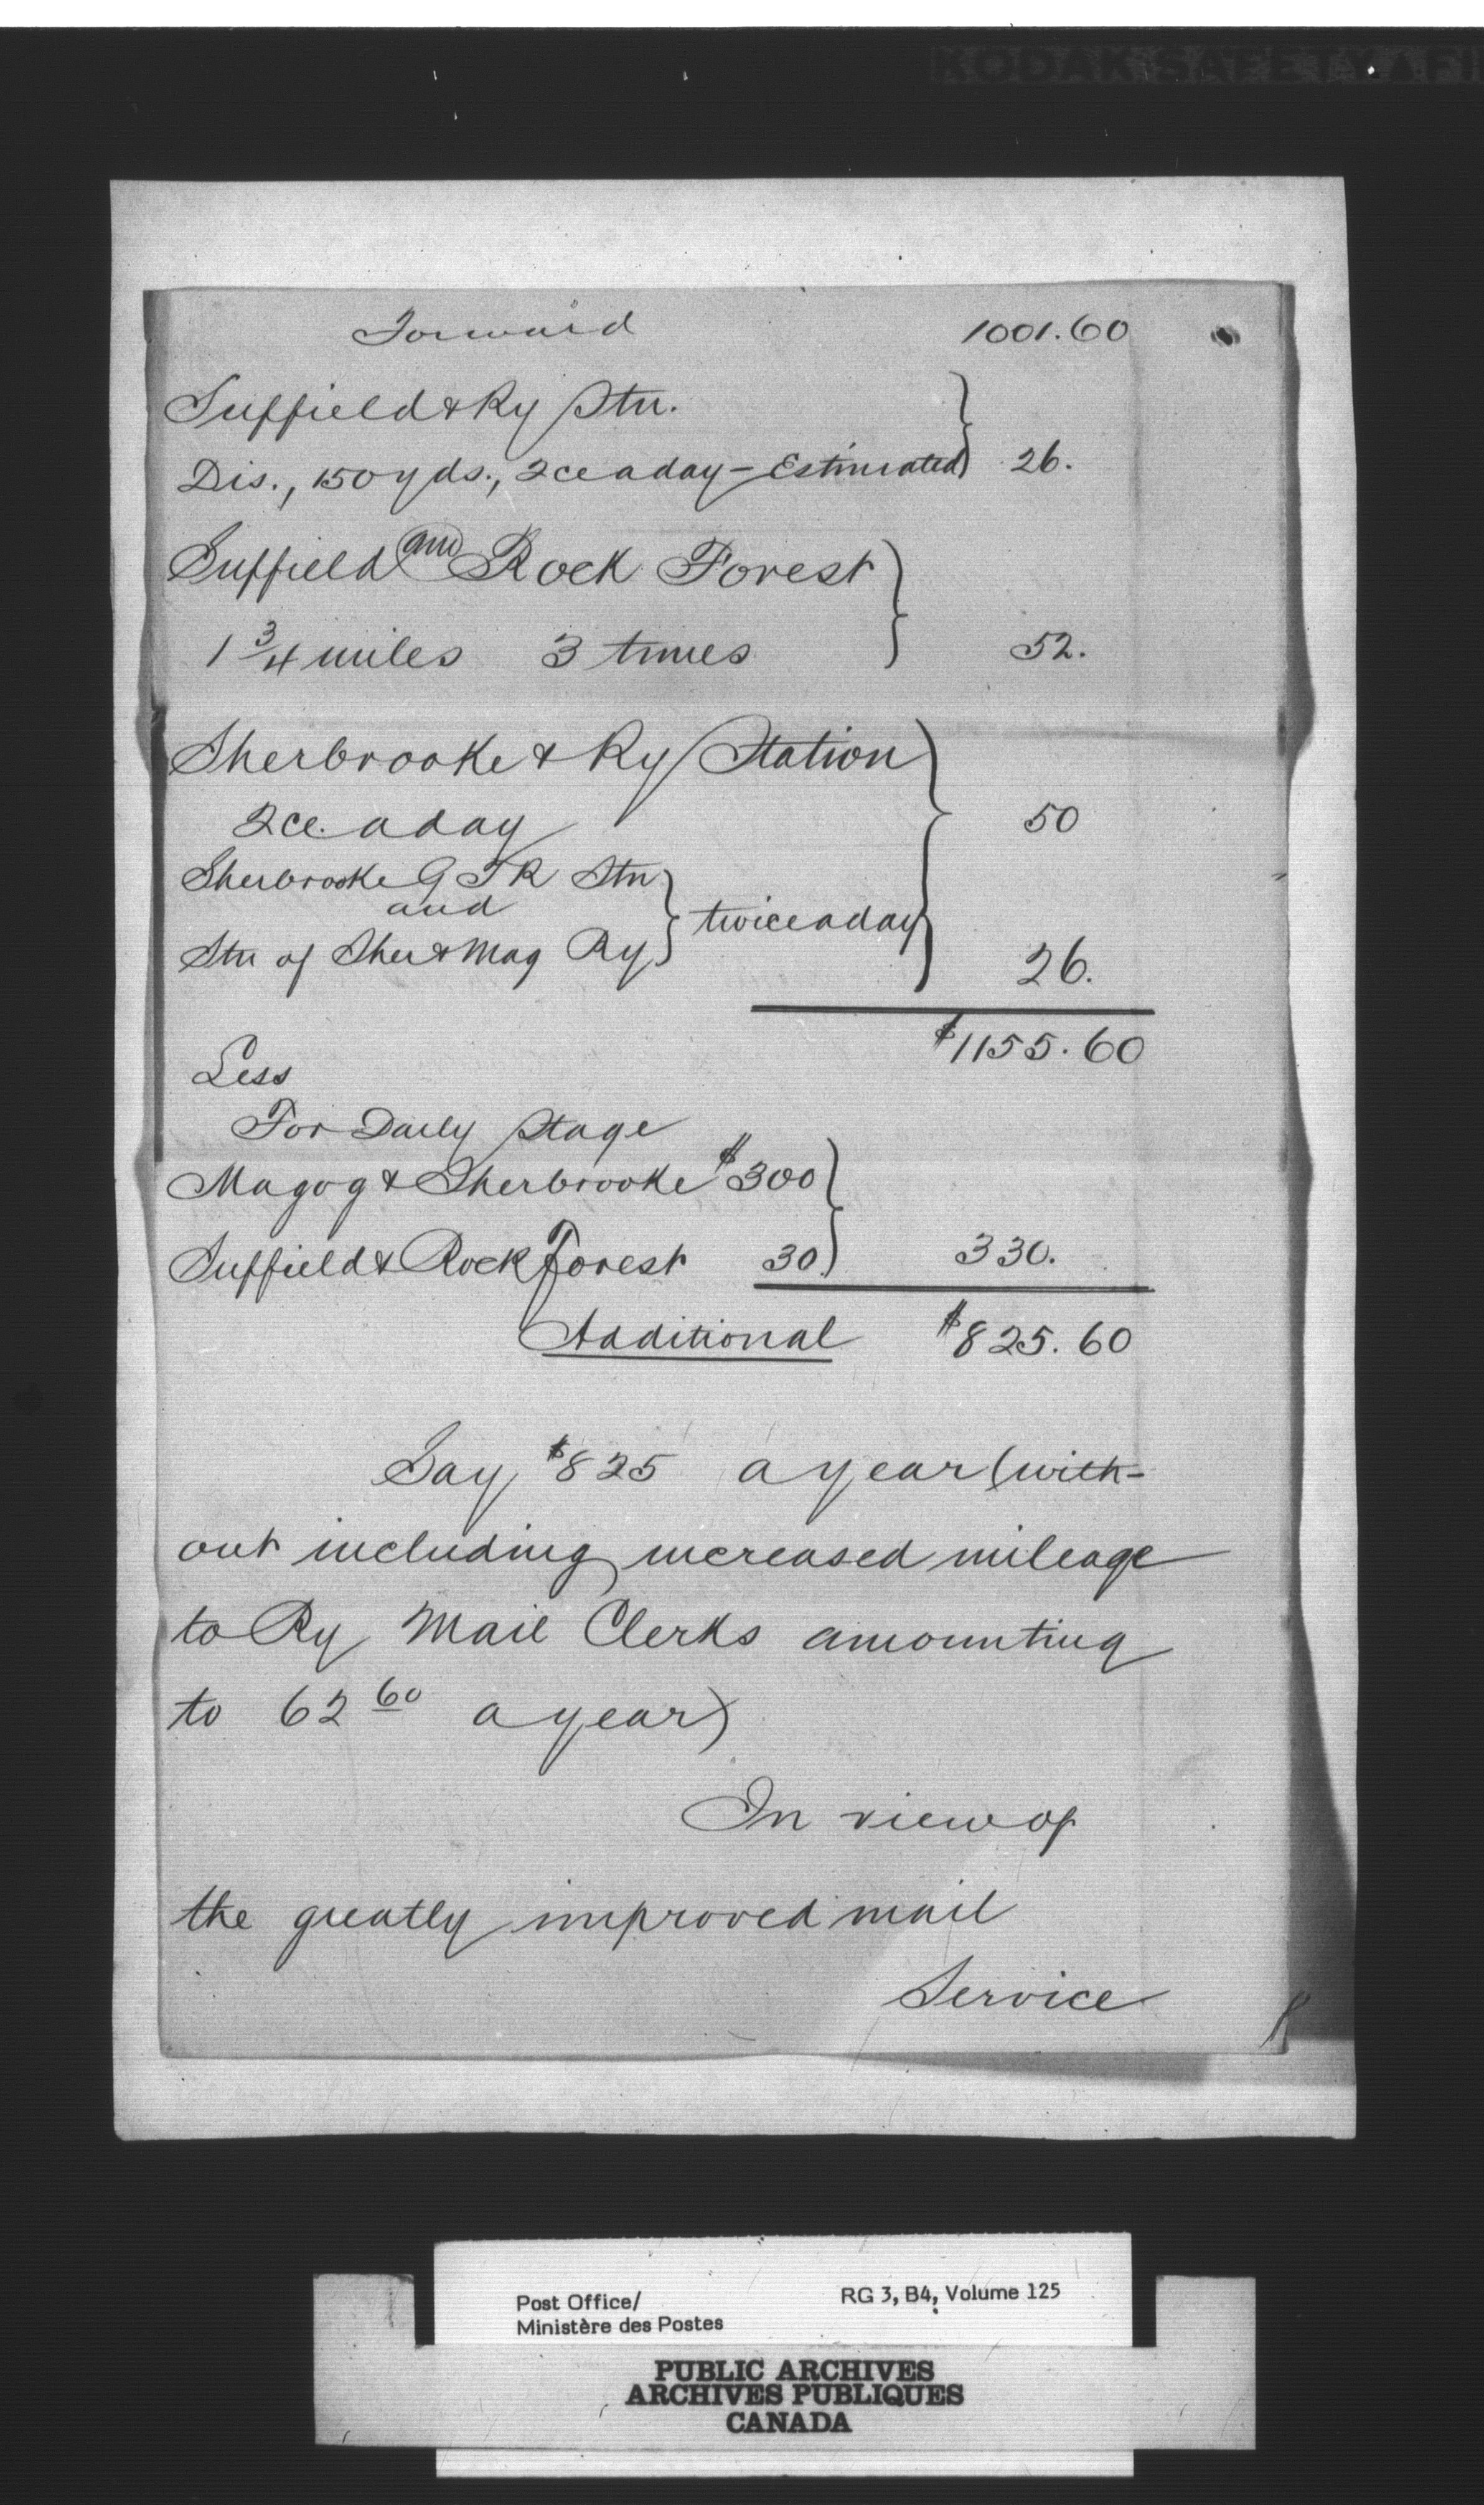 KODAK SAFETY FI
Forward 1001.60
Suffield & Ry Stn.
Dis., 150 yds., 2ce a day - Estimated } 26.
Suffield and Rock Forest
1 3/4 miles 3 times } 52.
Sherbrooke & Ry Station
2ce. a day } 50
Sherbrooke G T R Stn
and
twice a day
Stn of Sher & Mag Ry 26.
$1155.60
Less
For Daily Stage
Magog & Sherbrooke $300
Suffield & Rock Forest 30 } 330.
Additional $825.60
Say $825 a year (with-
out including increased mileage
to Ry Mail Clerks amounting
to 62 60 a year)
In view of
the greatly improved mail
Service
Post Office/ RG 3, B4, Volume 125
Ministère des Postes
PUBLIC ARCHIVES
ARCHIVES PUBLIQUES
CANADA